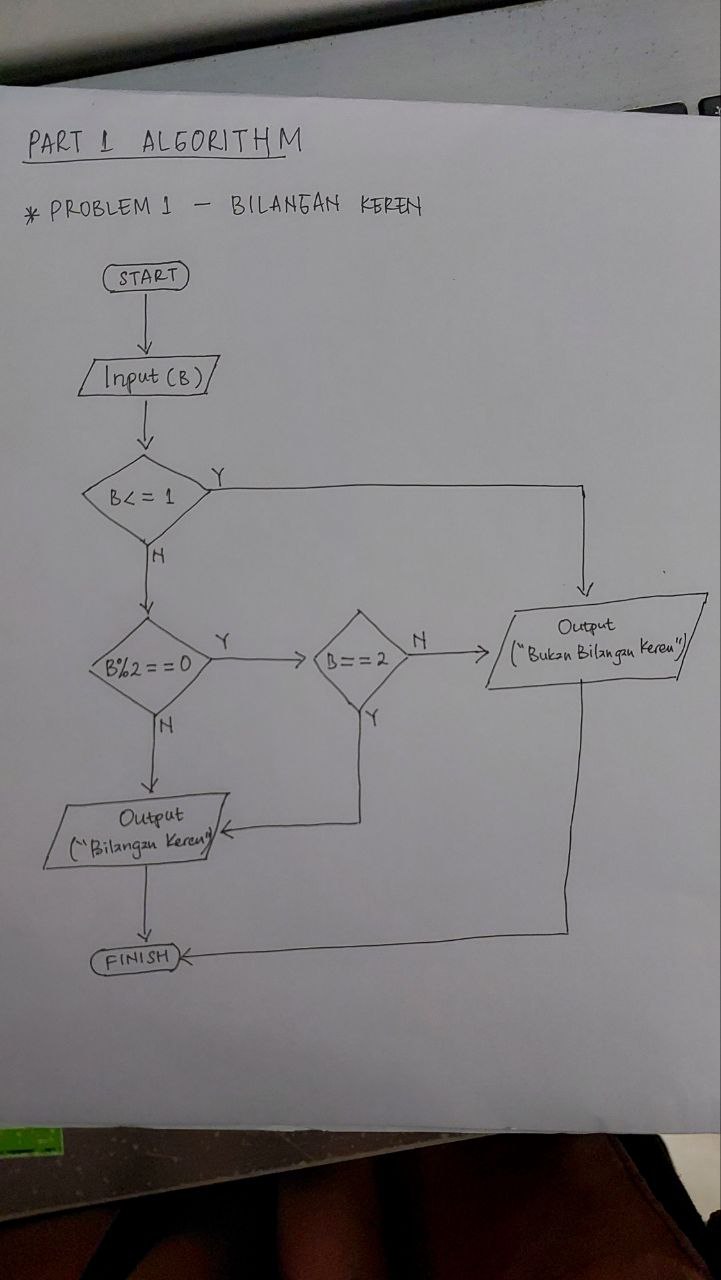 PART 1 ALGORITHM
* PROBLEM 1 - BILANGAN KEREN
START
Input (B)
B <= 1
Y
N
B%2 == 0
Y
B == 2
N
Output
("Bukan Bilangan Keren")
N
Y
Output
("Bilangan Keren")
FINISH